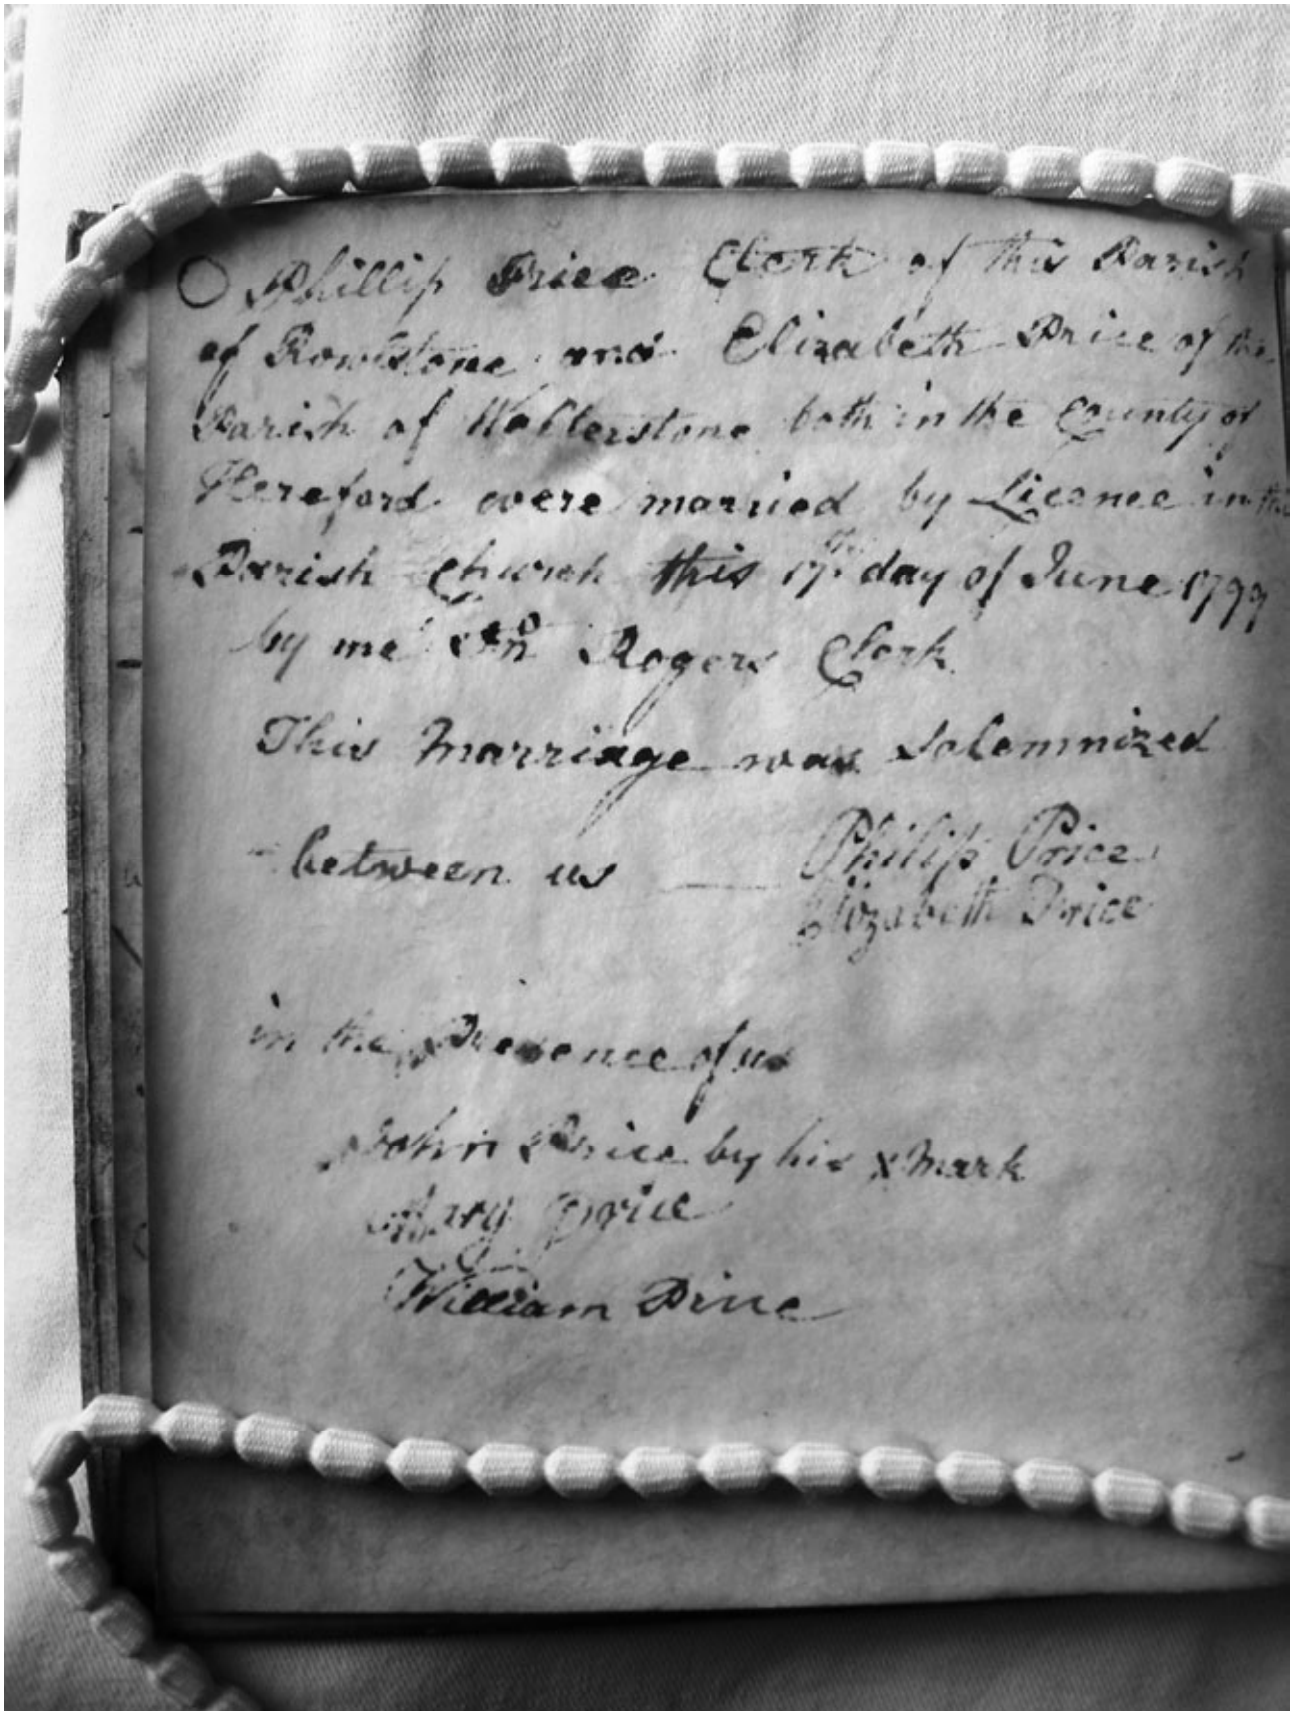 Phillip Price Clerk of this Parish
of Rowlstone and Elizabeth Price of the
Parish of Walterstone both in the County of
Hereford were married by Licence in the
Parish Church this 17th day of June 1799
by me Rogers Clerk
This Marriage was Solemnized
between us — Philip Price
Elizabeth Price
in the Presence of us
John Price by his x Mark
Mary Price
William Price